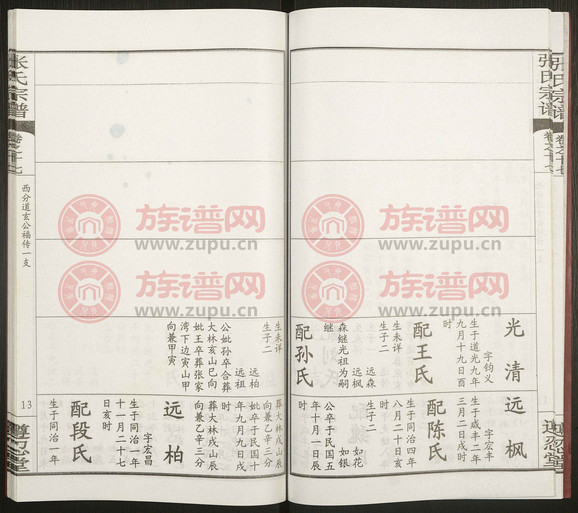 张氏宗谱
卷之十七
遵忍堂
光清
字钧义
生于道光九年
九月十九日酉
时
配王氏
生未详
生子二
远森
远枫
森继光祖为嗣
继
配孙氏
生未详
生子二
远柏
远祖
公妣孙卒合葬
大林亥山巳向
妣王卒葬张家
湾下边寅山甲
向兼甲寅
远枫
字宏丰
生于咸丰二年
三月二日戌时
配陈氏
生于同治四年
八月二十日亥
时
生子二
如花
如银
公卒于民国五
年十月一日辰
时
妣卒于民国十
年九月九日戌
时
葬大林戌山辰
向兼乙辛三分
葬大林戌山辰
向兼乙辛三分
远柏
字宏昌
生于同治一年
十一月二十七
日亥时
配段氏
生于同治一年
张氏宗谱
卷之十七
西分道玄公福传一支
13
遵忍堂
族谱网
www.zupu.cn
族谱网
www.zupu.cn
族谱网
www.zupu.cn
族谱网
www.zupu.cn